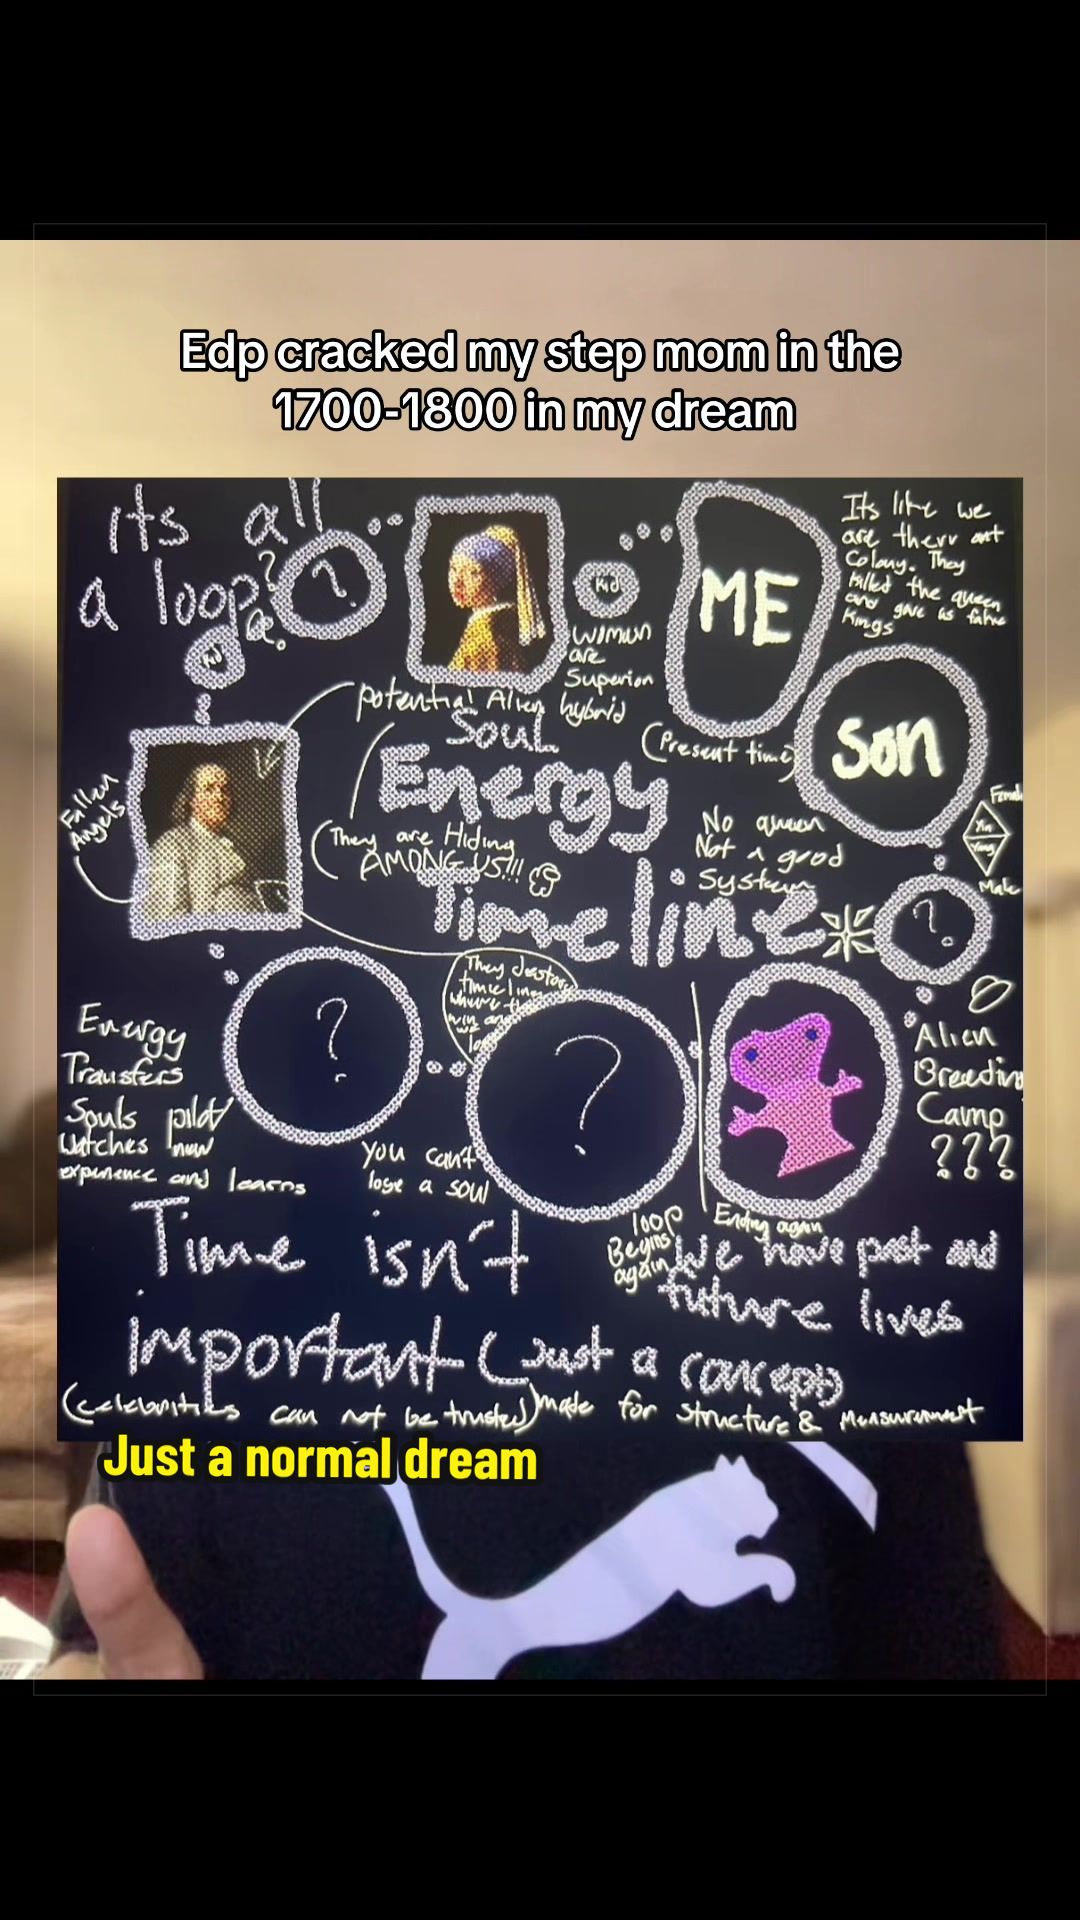 Edp cracked my step mom in the
1700-1800 in my dream
its all
a loop?
?
Kid
ME
Its like we
are therr ant
Colony. They
killed the queen
and gave us false
Kings
Woman
are
Superior
potential Alien hybrid
Soul
Energy
Timeline
(Present time)
Son
Fallen
Angels
(They are Hiding
AMONG US!!!
No queen
Not a good
System
Yin
Yang
Male
?
They destory
timelines
where they
win and
we
?
?
Energy
Transfers
Souls pilot
Watches new
experience and learns
you can't
lose a soul
Alien
Breeding
Camp
???
loop
Begins
again
Ending again
Time isn't
important (Just a concept)
We have past and
future lives
(celebrities can not be trusted) made for structure & Measurement
Just a normal dream